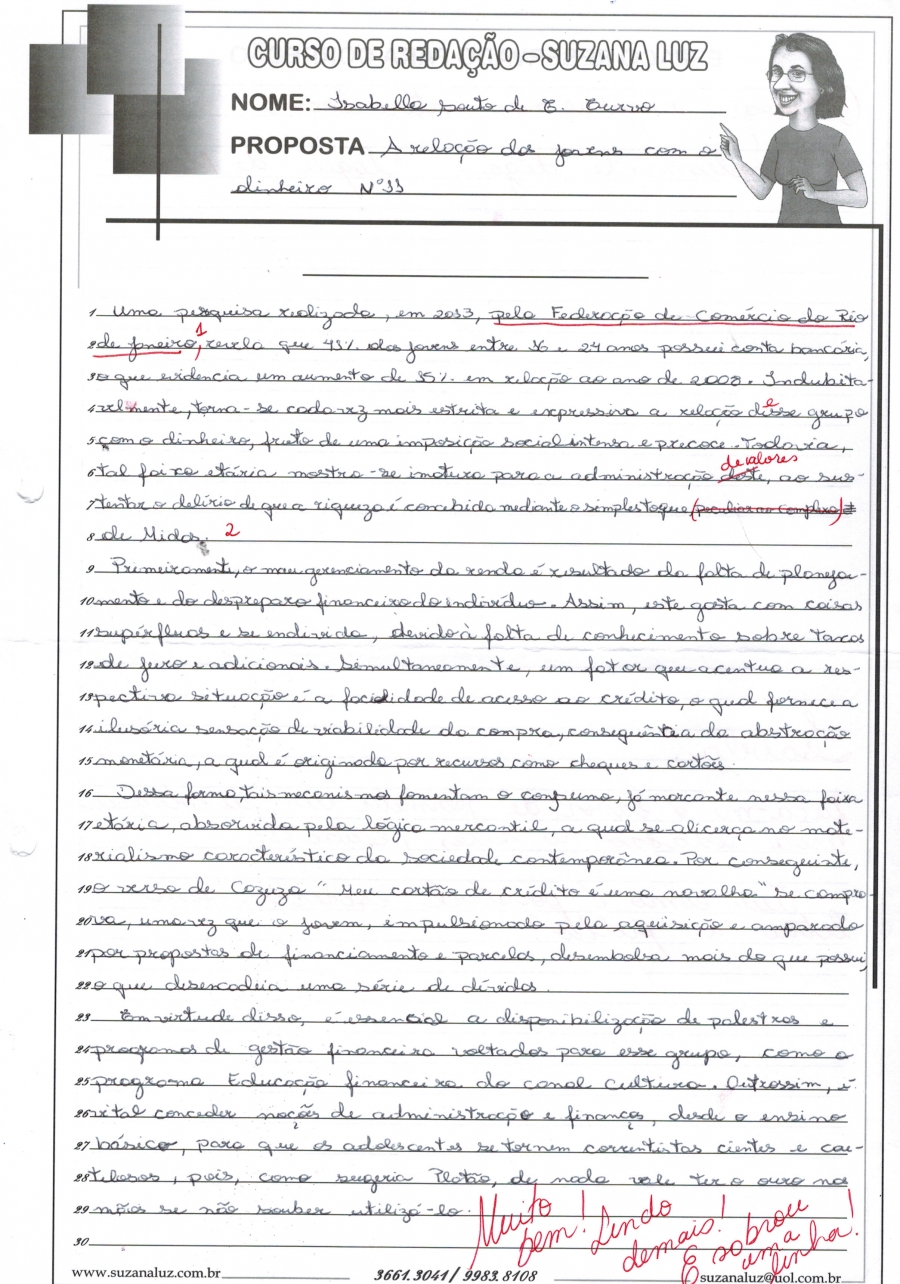 CURSO DE REDAÇÃO - SUZANA LUZ
NOME: Isabella Souto de
PROPOSTA A relação dos jovens com o
dinheiro Nº 11
1 Uma pesquisa realizada, em 2013, pela Federação de Comércio do Rio
1
2 de Janeiro, revela que 43% dos jovens entre 16 e 24 anos possui conta bancária,
3 o que evidencia um aumento de 15% em relação ao ano de 2008. Indubita-
e
4 velmente, torna-se cada vez mais estrita e expressiva a relação disse grupo
5 com o dinheiro, fruto de uma imposição social intensa e precoce. Todavia,
de valores
6 tal faixa etária mostra-se imatura para a administração deste, ao sus-
7 tentar o delírio de que a riqueza é concebida mediante o simples toque (peculiar ao complexo)
8 de Midas. 2
9 Primeiramente, o mau gerenciamento da renda é resultado da falta de planeja-
10 mento e do despreparo financeiro do indivíduo. Assim, este gasta com coisas
11 supérfluas e se endivida, devido à falta de conhecimento sobre taxas
12 de juro e adicionais. Simultaneamente, um fator que acentua a res-
13 pectiva situação é a facilidade de acesso ao crédito, o qual fornece a
14 ilusória sensação de viabilidade da compra, consequência da abstração
15 monetária, a qual é originada por recursos como cheques e cartões.
16 Dessa forma, tais mecanismos fomentam o consumo, já marcante nessa faixa
17 etária, absorvida pela lógica mercantil, a qual se alicerça no mate-
18 rialismo característico da sociedade contemporânea. Por conseguinte,
19 o verso de Cazuza "Meu cartão de crédito é uma navalha" se compro-
20 va, uma vez que o jovem, impulsionado pela aquisição e amparado
21 por propostas de financiamento e parcelas, desembolsa mais do que possui,
22 o que desencadeia uma série de dívidas.
23 Em virtude disso, é essencial a disponibilização de palestras e
24 programas de gestão financeira voltados para esse grupo, como o
25 programa Educação financeira do canal Cultura. Outrossim, é
26 vital conceder noções de administração e finanças, desde o ensino
27 básico, para que os adolescentes se tornem correntistas cientes e cau-
28 telosos, pois, como sugeria Platão, de nada vale ter o ouro nas
29 mãos se não souber utilizá-lo.
Muito bem! Lindo demais! E sobrou uma linha!
30
www.suzanaluz.com.br 3661.3041 / 9983.8108 suzanaluz@uol.com.br